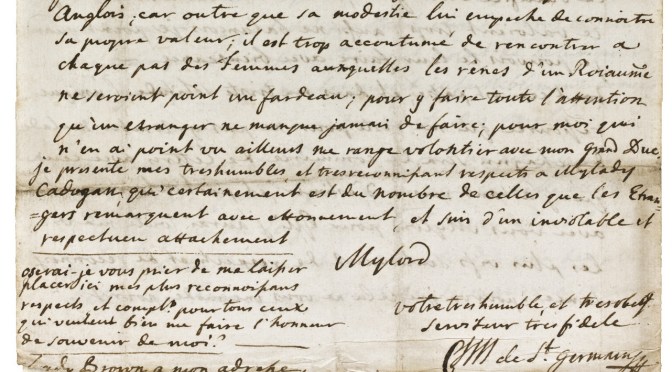 Anglois; car outre que sa modestie lui empeche de connoitre
sa propre valeur; il est trop accoutumé de rencontrer a
chaque pas des femmes auxquelles les rènes d'un Roiaume
ne seroient point un fardeau; pour y faire toute l'attention
qu'un etranger ne manque jamais de faire; pour moi qui
n'en ai point vu ailleurs me range volontier avec mon grand Duc
je presente mes treshumbles et tresreconnissant respects a Mylady
Cadogan qui certainement est du nombre de celles que les Etran-
=gers remarquent avec ettonnement, et suis d'un inviolable et
respectueu attachement
Mylord
oserai-je vous prier de me laisser
placer ici mes plus reconnoissans
respects et compl: pour tous ceux
qui veulent bien me faire l'honneur
de souvenir de moi?
votre treshumble, et tresobeist
serviteur tresfidele
de St. Germain
Lady Brown a mon adresse